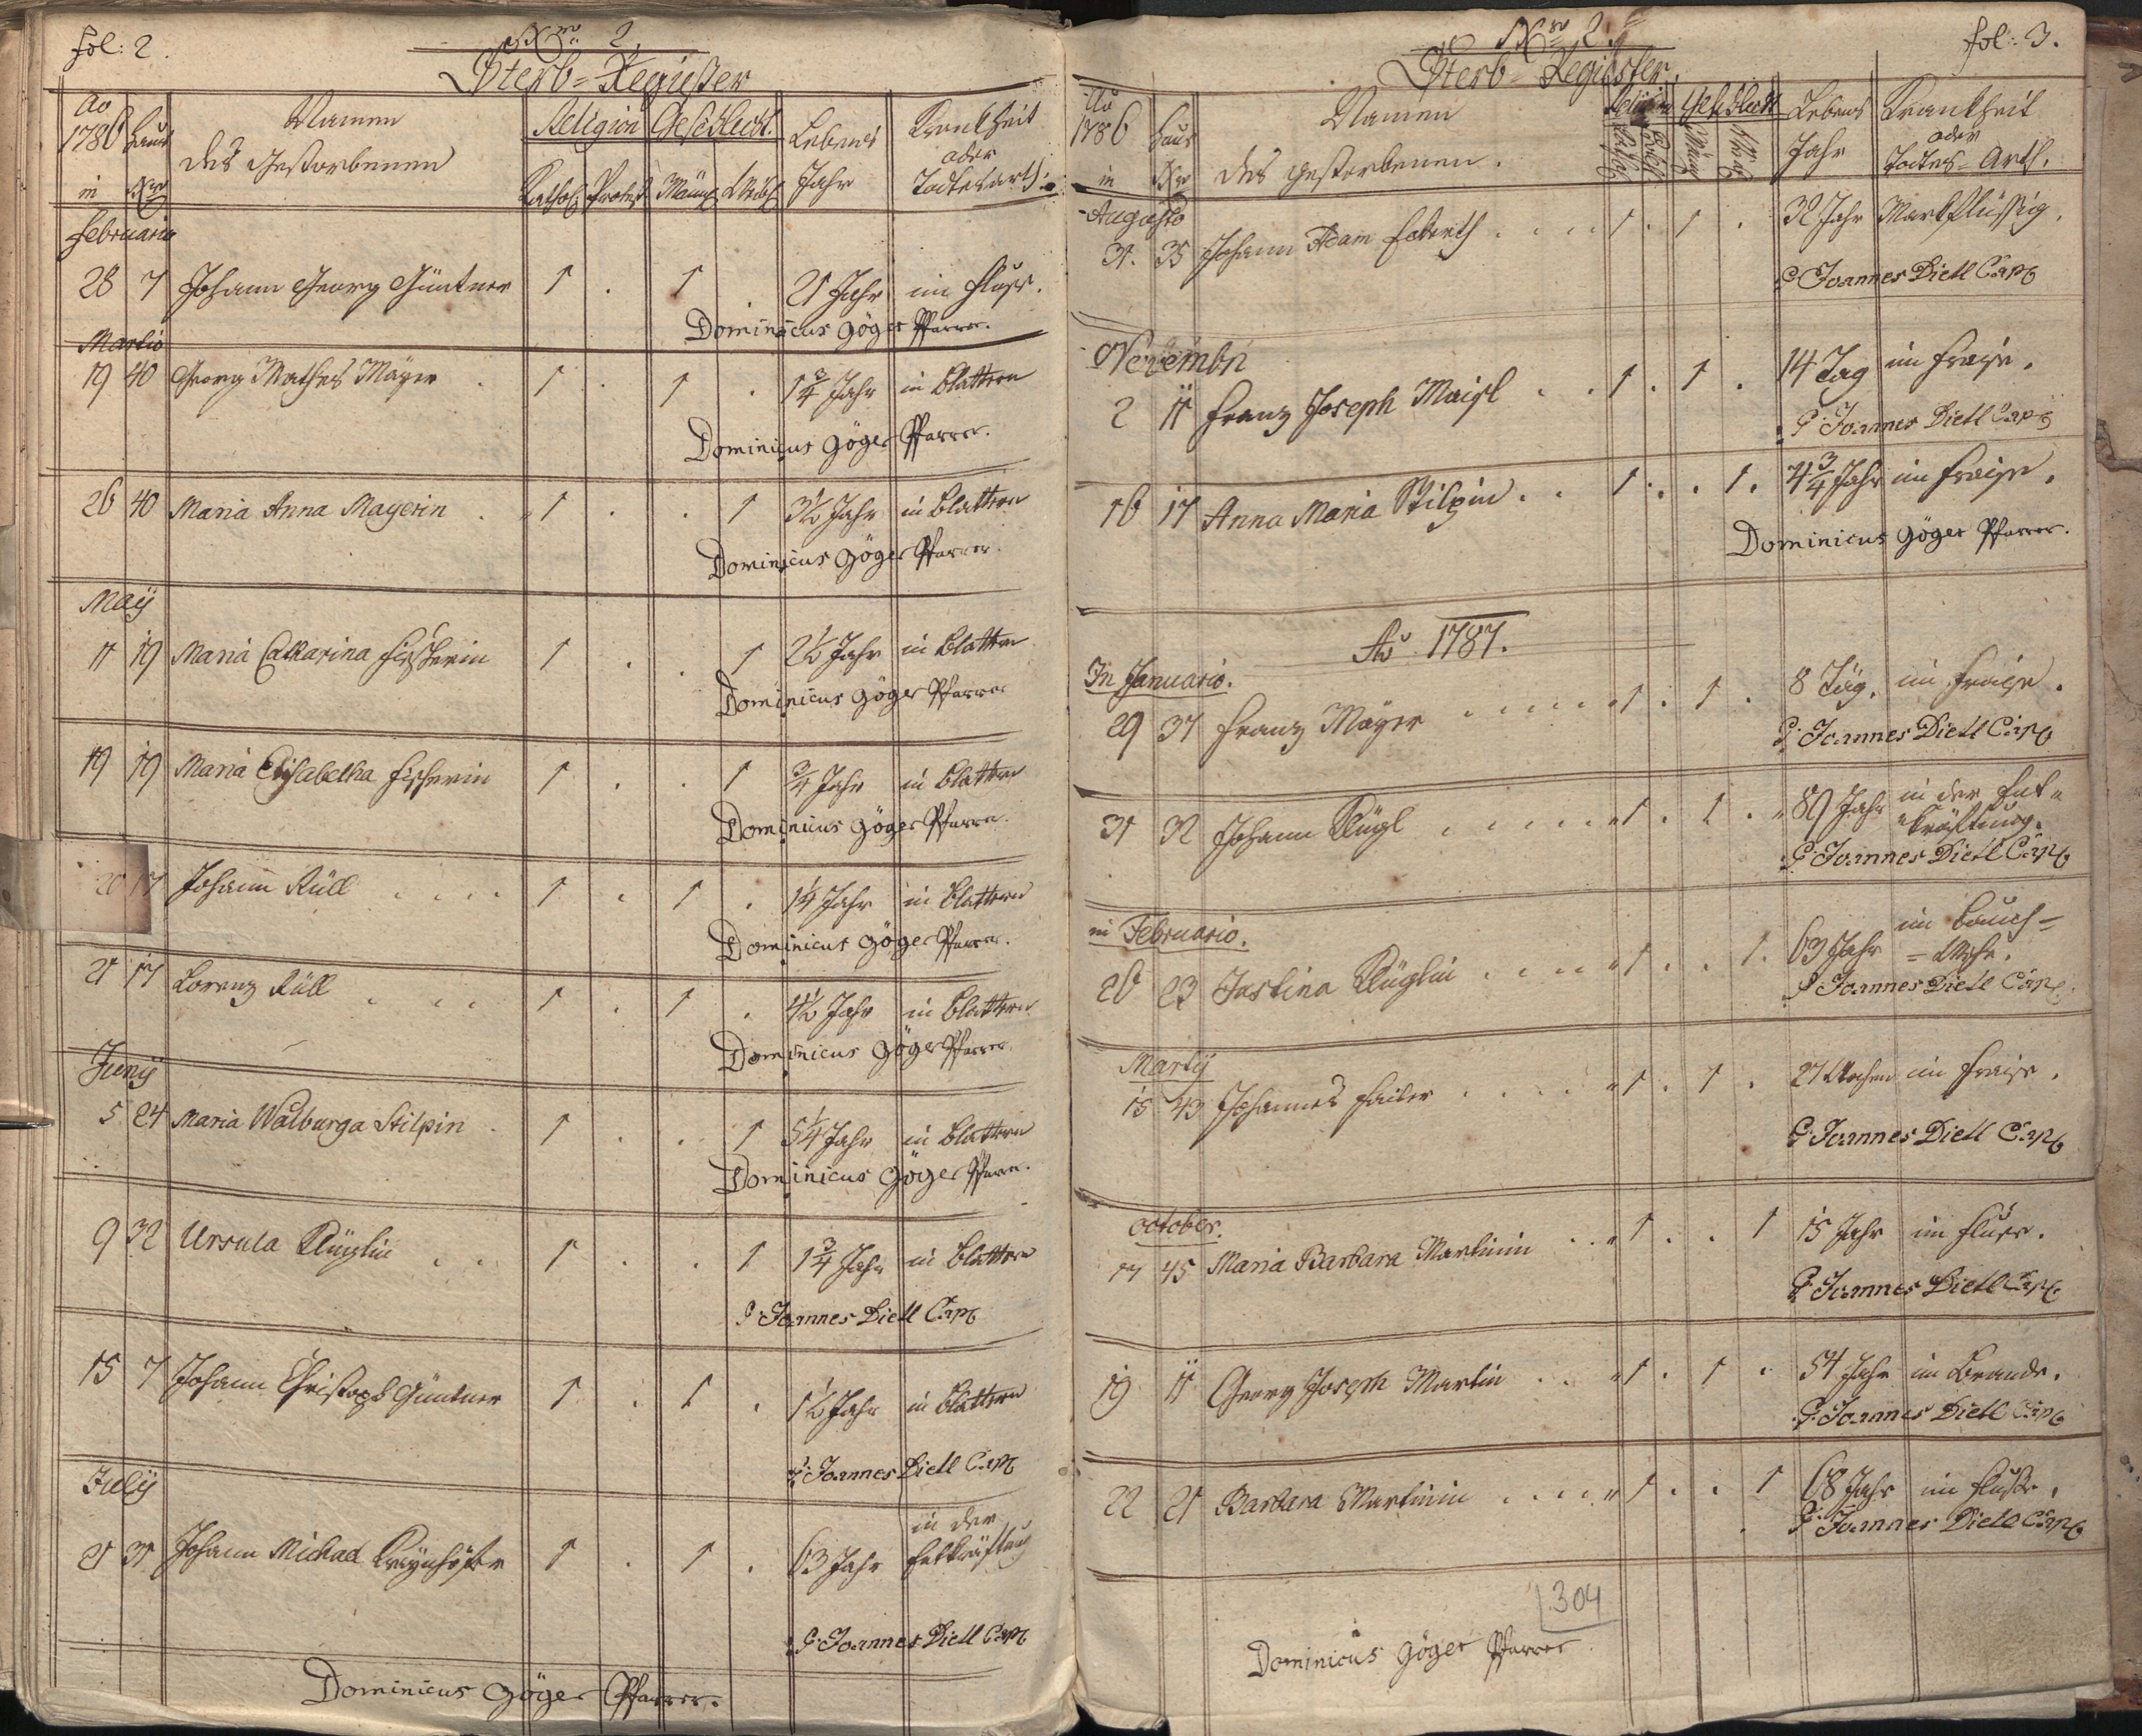 fol: 2.
Nro 2.
Sterb-Register
Ao 1786 in
Haus Nro
Namen des Gestorbenen
Religion
Geschlecht.
Lebens Jahr
Krankheit oder Todtesarth.
Kathol. Protest. Männl. Weibl.
Februario
28 7 Johann Georg Güntner 1 . 1 . 21 Jahr im Fluss.
Dominicus Göger Pfarrer.
Martio
19 40 Georg Mathes Mayer . 1 . 1 . 1 3/4 Jahr in Blattern
Dominicus Göger Pfarrer.
26 40 Maria Anna Mayerin . 1 . . 1 3 1/2 Jahr in Blattern
Dominicus Göger Pfarrer.
Maÿ
11 19 Maria Catharina Fischerin 1 . . 1 2 1/2 Jahr in Blattern
Dominicus Göger Pfarrer
19 19 Maria Elisabetha Fischerin 1 . . 1 3/4 Jahr in Blattern
Dominicus Göger Pfarrer.
20 17 Johann Rüll . . . . 1 . 1 . 1 1/4 Jahr in Blattern
Dominicus Göger Pfarrer.
21 17 Lorenz Rüll . . . 1 . 1 . 4 1/2 Jahr in Blattern
Dominicus Göger Pfarrer.
Junÿ
5 24 Maria Walburga Stilpin . 1 . . 1 5 1/4 Jahr in Blattern
Dominicus Göger Pfarrer.
9 32 Ursula Klüglin . . 1 . . 1 1 3/4 Jahr in Blattern
P: Joannes Dietl Cap
15 7 Johann Christoph Güntner 1 . 1 . 1 1/2 Jahr in Blattern
P: Joannes Dietl Cap
Julÿ
21 31 Johann Michael 1 . 1 . 63 Jahr in der Entkräftung
P: Joannes Dietl Cap
Dominicus Göger Pfarrer.
Nro 2.
fol: 3.
Sterb-Register.
Ao 1786 in
Haus Nro
Namen des gestorbenen.
Religion
Geschlecht
Lebens Jahr
Krankheit oder Todtes-Arth.
Augusto
31. 35 Johann Adam . . . 1 . 1 . 32 Jahr
P Joannes Dietl Cap
Novembri
2 11 Franz Joseph Maisl . . 1 . 1 . 14 Tag im Fraise.
P: Joannes Dietl Cap
16 17 Anna Maria Stilpin . . 1 . . 1. 4 3/4 Jahr im Fraise.
Dominicus Göger Pfarrer.
Ao 1787.
In Januario.
29 37 Franz Mayer . . . . . 1 . 1 . 8 Täg. im Fraise.
P: Joannes Dietl Cap
31 32 Johann Klügl . . . . . 1 . 1 . 89 Jahr in der Ent-
kräftung.
P: Joannes Dietl Cap
in Februario.
26 23 Justina Klüglin . . . . 1 . . 1. 63 Jahr im Bauch-
=Wehe.
P Joannes Dietl Cap
Martÿ
15 43 Johannes . . . . 1 . 1 . 27 Wochen im Fraise.
P: Joannes Dietl Cap
October.
17 45 Maria Barbara Martinin . . 1 . . 1 15 Jahr im Fluss.
P: Joannes Dietl Cap
19 11 Georg Joseph Martin . . 1 . 1 . 54 Jahr im Brande.
P: Joannes Dietl Cap
22 21 Barbara Martinin . . . . 1 . . 1 68 Jahr im Flusse.
P: Joannes Dietl Cap
304
Dominicus Göger Pfarrer